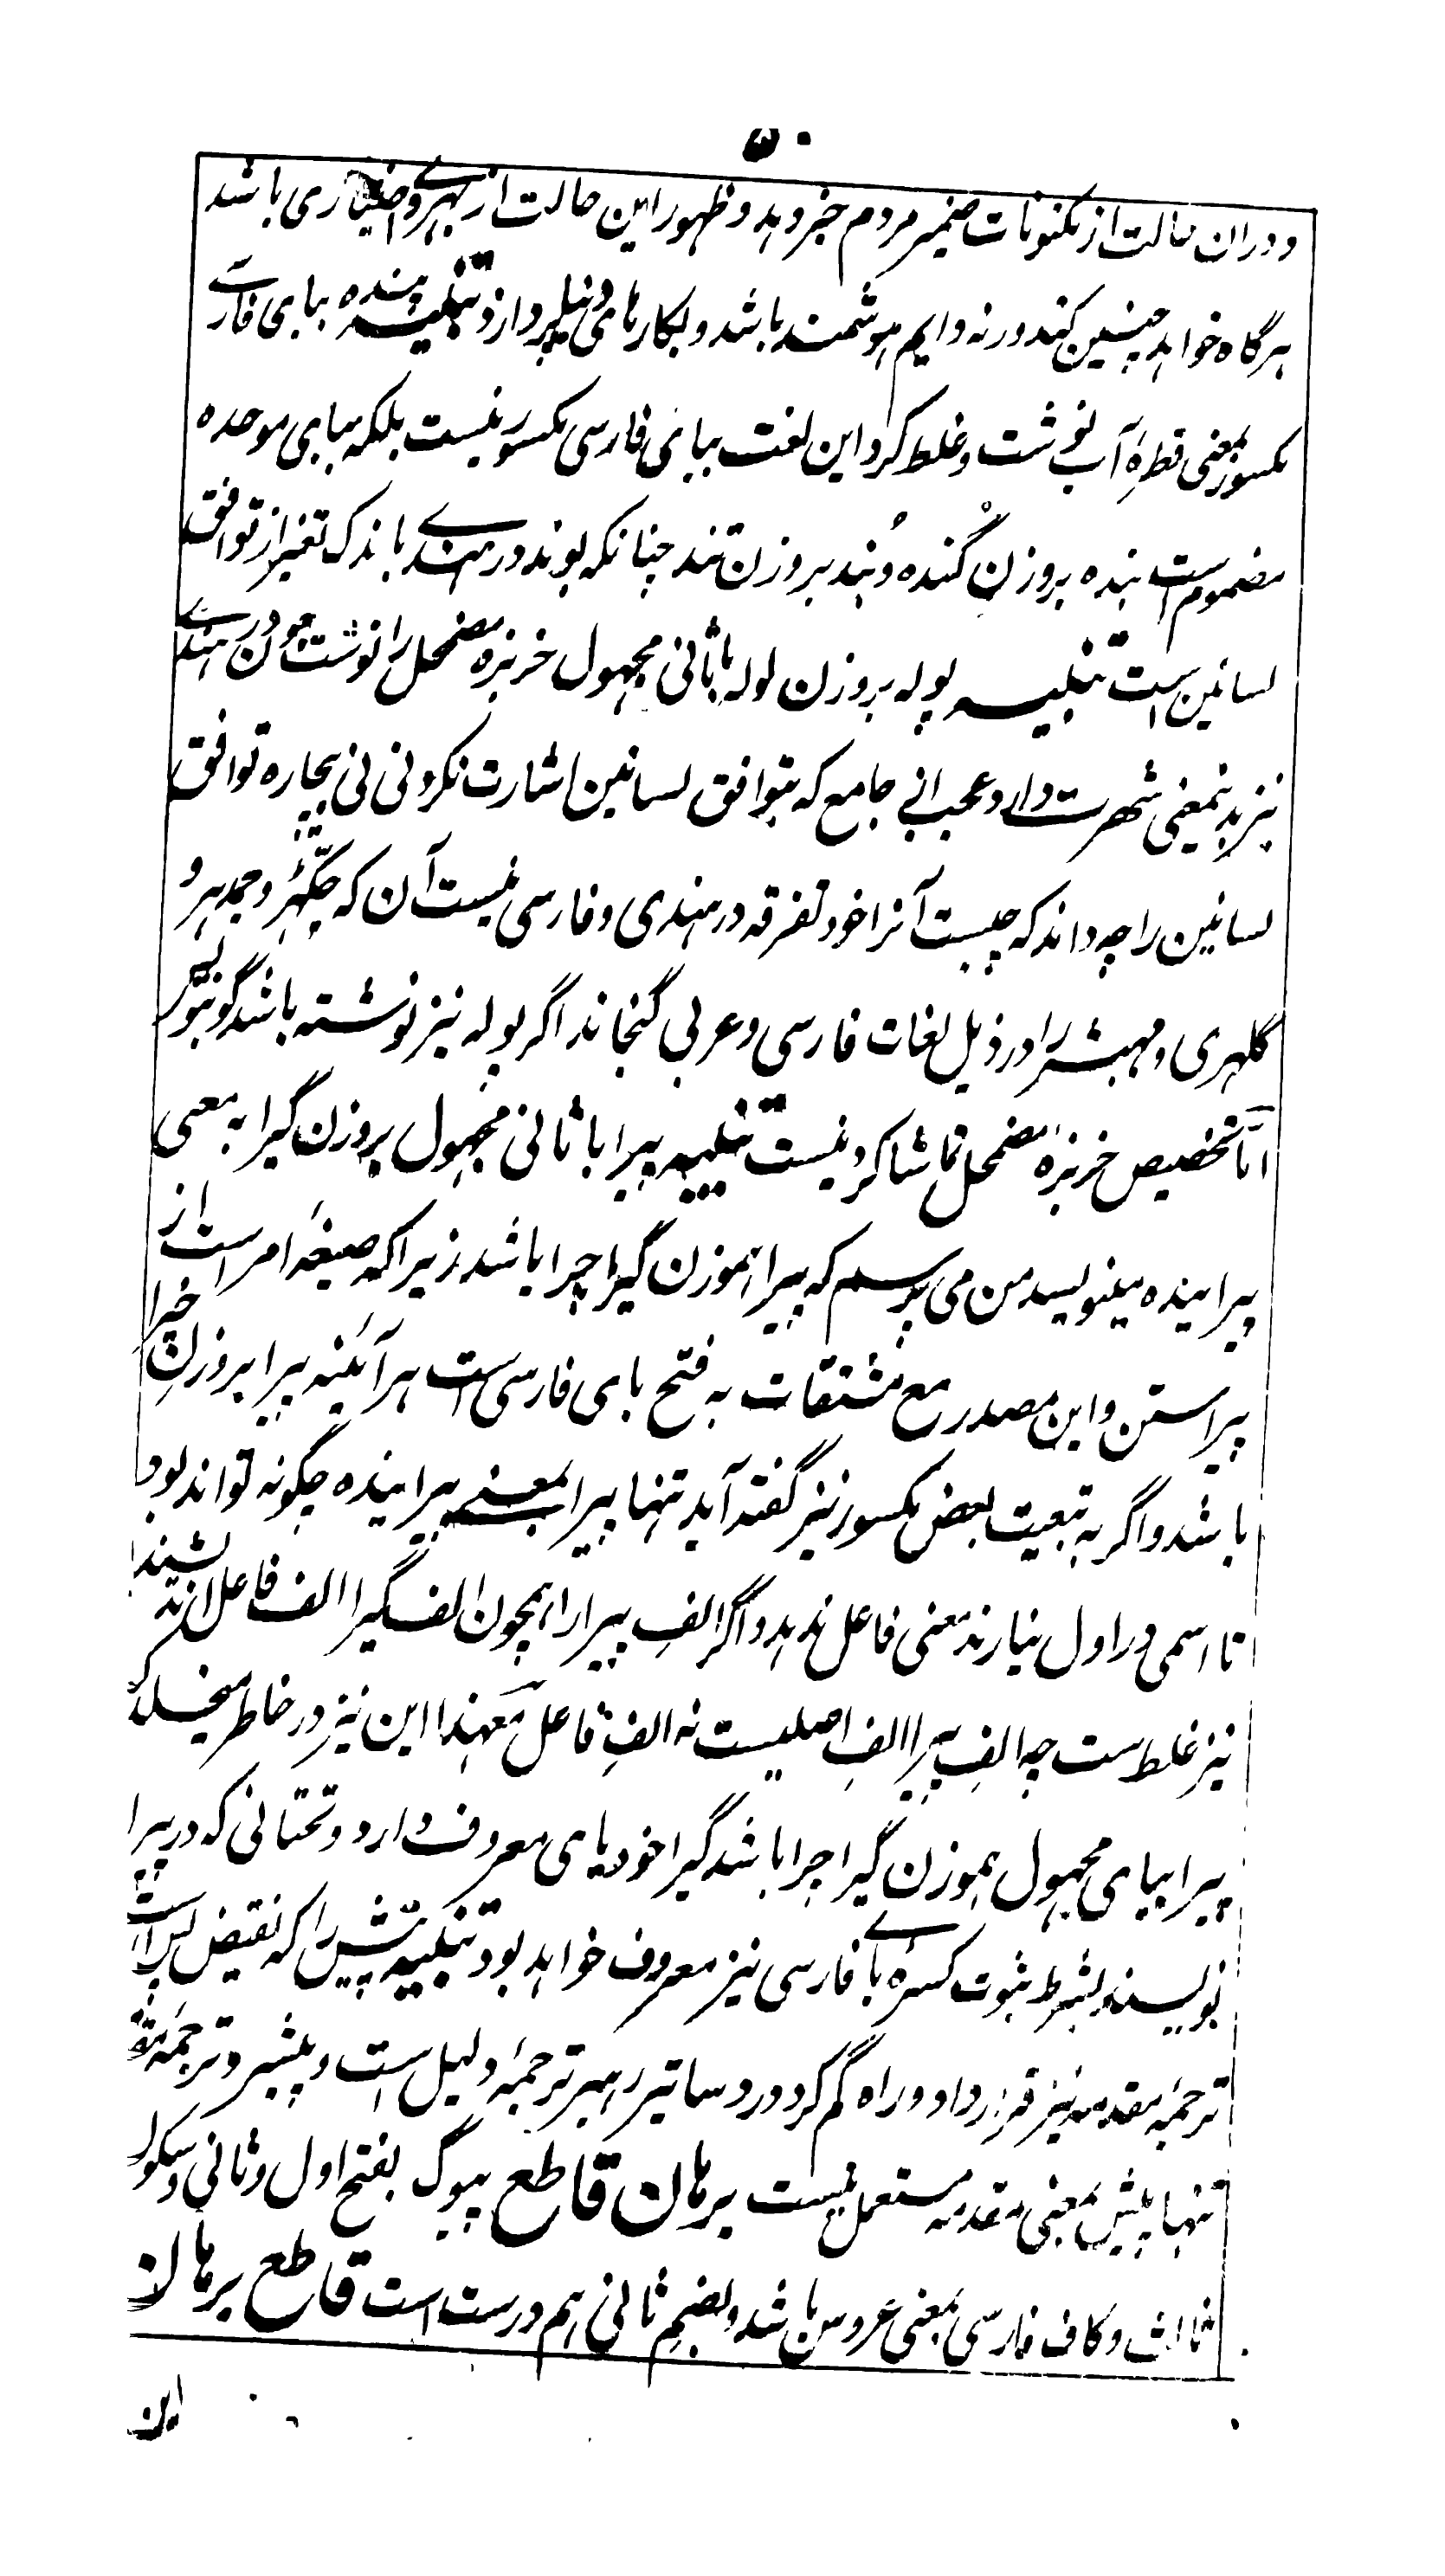 ۵۰
و دران حالت از مکنونات ضمیر مردم خبر دهد و ظهور این حالت از بهر وی اختیاری باشد
هرگاه خواهد چنین کند ورنه دایم هوشمند باشد و بکارهای دنیا پردازد تنبیه پنده ببای فارسی
مکسور بمعنی قطرهٔ آب نوشت و غلط کرد این لغت ببای فارسی مکسور نیست بلکه ببای موحده
مضموم است بنده بروزن گنده و بند بروزن تند چنانکه بوند در هندی باندک تغیر از توافق
لسانین است تنبیه پوله بروزن لوله با ثانی مجهول خربزه مضمحل را نوشت چون در هندی
نیز بدینمعنی شهرت دارد عجب از جامع که بتوافق لسانین اشارت نکرد نی نی بیچاره توافق
لسانین را چه داند که چیست آنرا خود تفرقه در هندی و فارسی نیست آن که چکهر و جمدهر و
گلهری و مهبر را در ذیل لغات فارسی و عربی گنجاند اگر پوله نیز نوشته باشد گو بنویس
امّا تخصیص خربزهٔ مضمحل تماشا کردنیست تنبیه پیرا با ثانی مجهول بروزن گیرا به معنی
پیراینده مینویسد من می پرسم که پیرا هموزن گیرا چرا باشد زیرا که صیغهٔ امر است از
پیراستن و این مصدر مع مشتقات به فتح بای فارسی است هر آئینه پیرا بروزن خیرا
باشد و اگر به تبعیت بعض مکسور نیز گفته آید تنها پیرا بمعنی پیراینده چگونه تواند بود
تا اسمی در اول نیارند معنی فاعل ندهد و اگر الفِ پیرا را همچون الف گیرا الف فاعل اندیشند
نیز غلط ست چه الفِ پیرا الفِ اصلیست نه الفِ فاعل معهذا این نیز در خاطر میخلد که
پیرا بیای مجهول هموزن گیرا چرا باشد گیرا خود یای معروف دارد و تحتانی که در پیرا
نویسند بشرط ثبوت کسرهٔ بای فارسی نیز معروف خواهد بود تنبیه پیش را که نقیض پس است
ترجمهٔ مقدمه نیز قرار داد و راه گم کرد در دساتیر رهبر ترجمهٔ دلیل است و پیشرو ترجمهٔ مقدمه
تنها پیش بمعنی مقدمه مستعمل نیست برهان قاطع پیوگ بفتح اول و ثانی و سکون
ثالث و کاف فارسی بمعنی عروس باشد و بضم ثانی هم درست است قاطع برهان
این